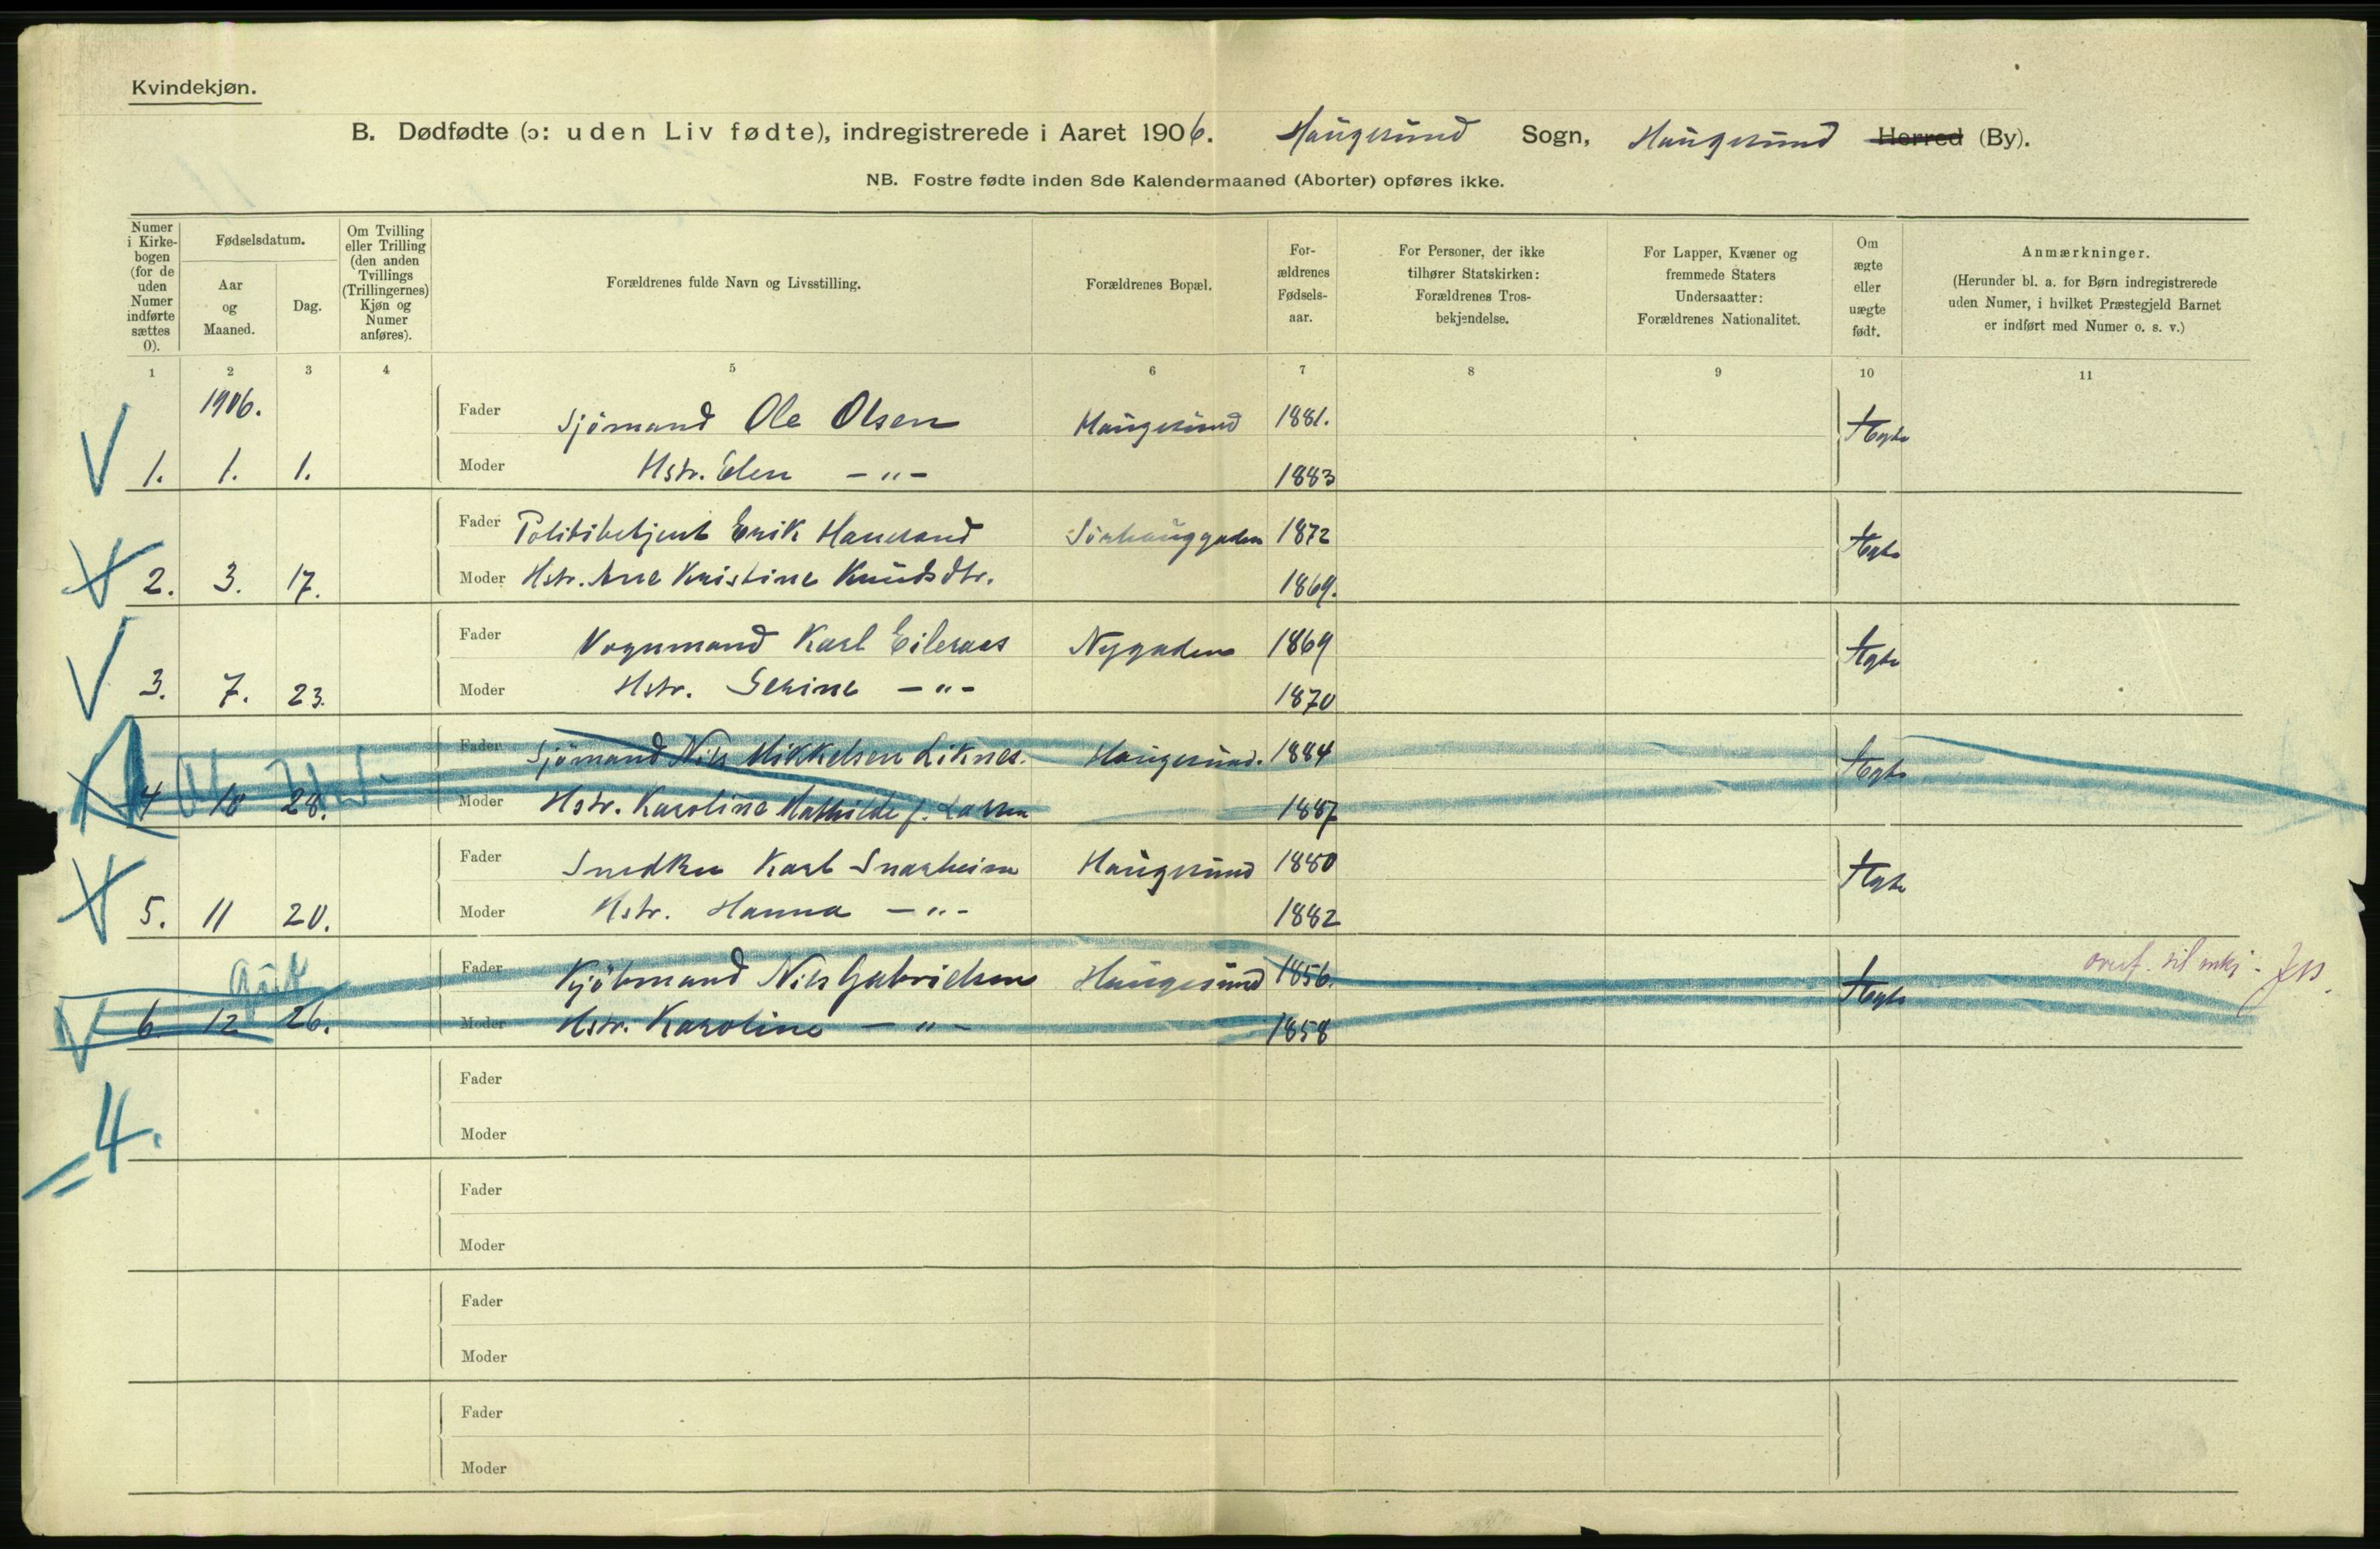 Kvindekjøn.
B. Dødfødte (ɔ: uden Liv fødte), indregistrerede i Aaret 1906. Haugesund Sogn, Haugesund Herred (By).
NB. Fostre fødte inden 8de Kalendermaaned (Aborter) opføres ikke.
Numer i Kirke-bogen (for de uden Numer indførte sættes 0).
Fødselsdatum.
Aar og Maaned.
Dag.
Om Tvilling eller Trilling (den anden Tvillings (Trillingernes) Kjøn og Numer anføres).
Forældrenes fulde Navn og Livsstilling.
Forældrenes Bopæl.
For-ældrenes Fødsels-aar.
For Personer, der ikke tilhører Statskirken: Forældrenes Tros-bekjendelse.
For Lapper, Kvæner og fremmede Staters Undersaatter: Forældrenes Nationalitet.
Om ægte eller uægte født.
Anmærkninger.
(Herunder bl. a. for Børn indregistrerede uden Numer, i hvilket Præstegjeld Barnet er indført med Numer o. s. v.)
1 2 3 4 5 6 7 8 9 10 11
1906.
Fader Sjömand Ole Olsen Haugesund 1881. Ægte
1. 1. 1. Moder Hstr. Elen — " — 1883
Fader Politibetjent Erik Haueland Sörhauggaden 1872 Ægte
2. 3. 17. Moder Hstr. Ane Kristine Knudsdtr. 1869.
Fader Vognmand Karl Eileraas Nygaden 1869 Ægte
3. 7. 23. Moder Hstr. Serine — " — 1870
Fader Sjömand Nils Mikkelsen Liknes. Haugesund. 1884 Ægte
4 10 28. Moder Hstr. Karoline Mathilde f. Larsen 1887
Fader Snedker Karl Snarheim Haugesund 1880 Ægte
5. 11 20. Moder Hstr. Hanna — " — 1882
Gut
Fader Kjöbmand Nils Gabrielsen Haugesund 1856. Ægte overf. til mkj.
6 12 26. Moder Hstr. Karoline — " — 1858
Fader
= 4.
Moder
Fader
Moder
Fader
Moder
Fader
Moder